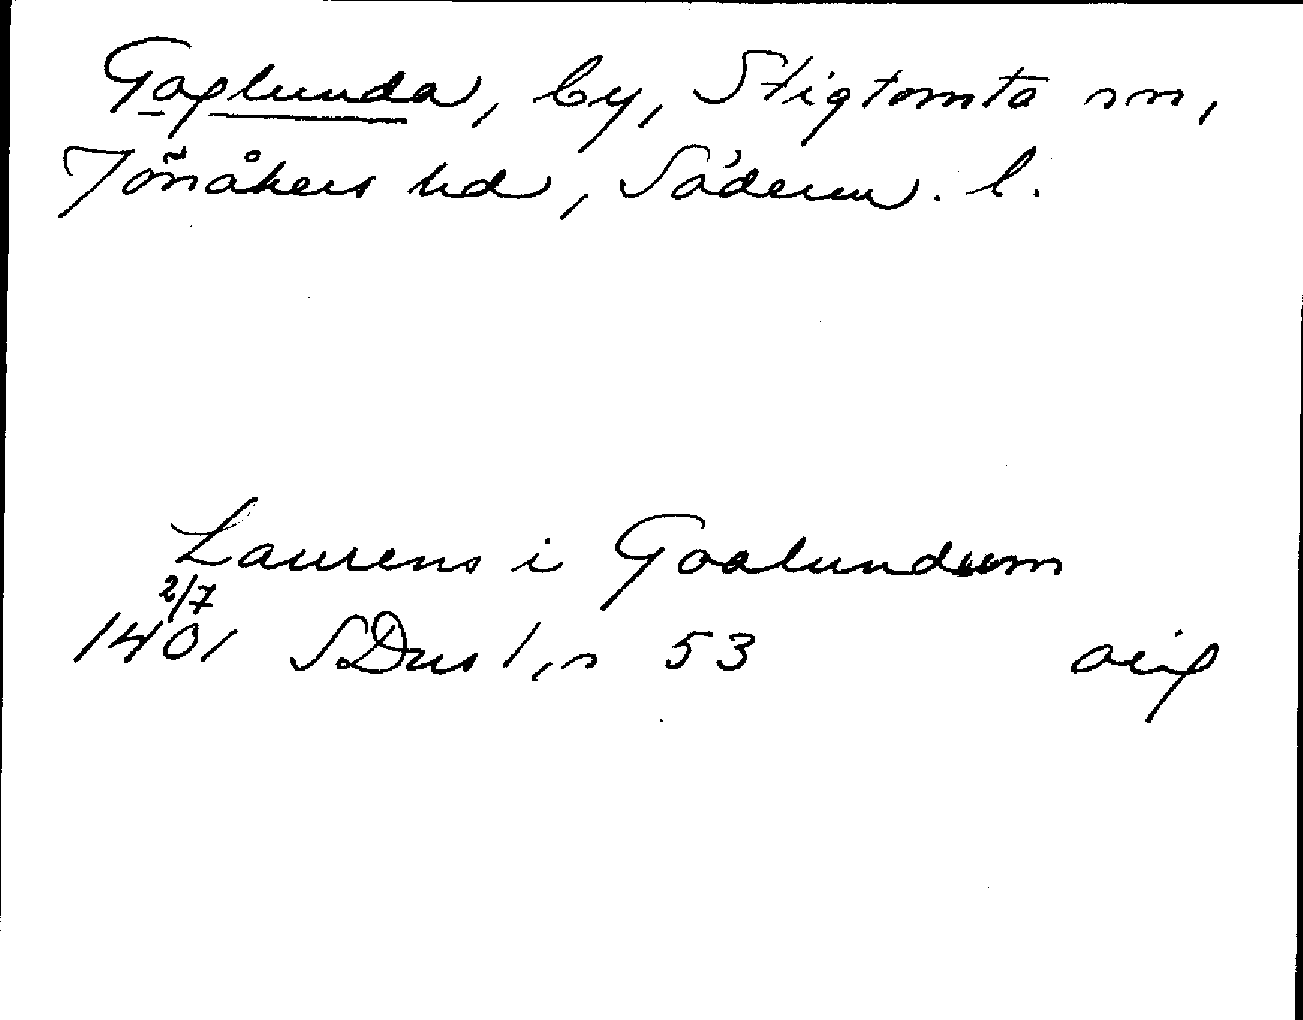 Gaglunda, by, Stigtomta sn,
Jönåkers hd, Söderm. l.
Laurens i Goalundum
2/7
1401 SDns 1, s 53 orig